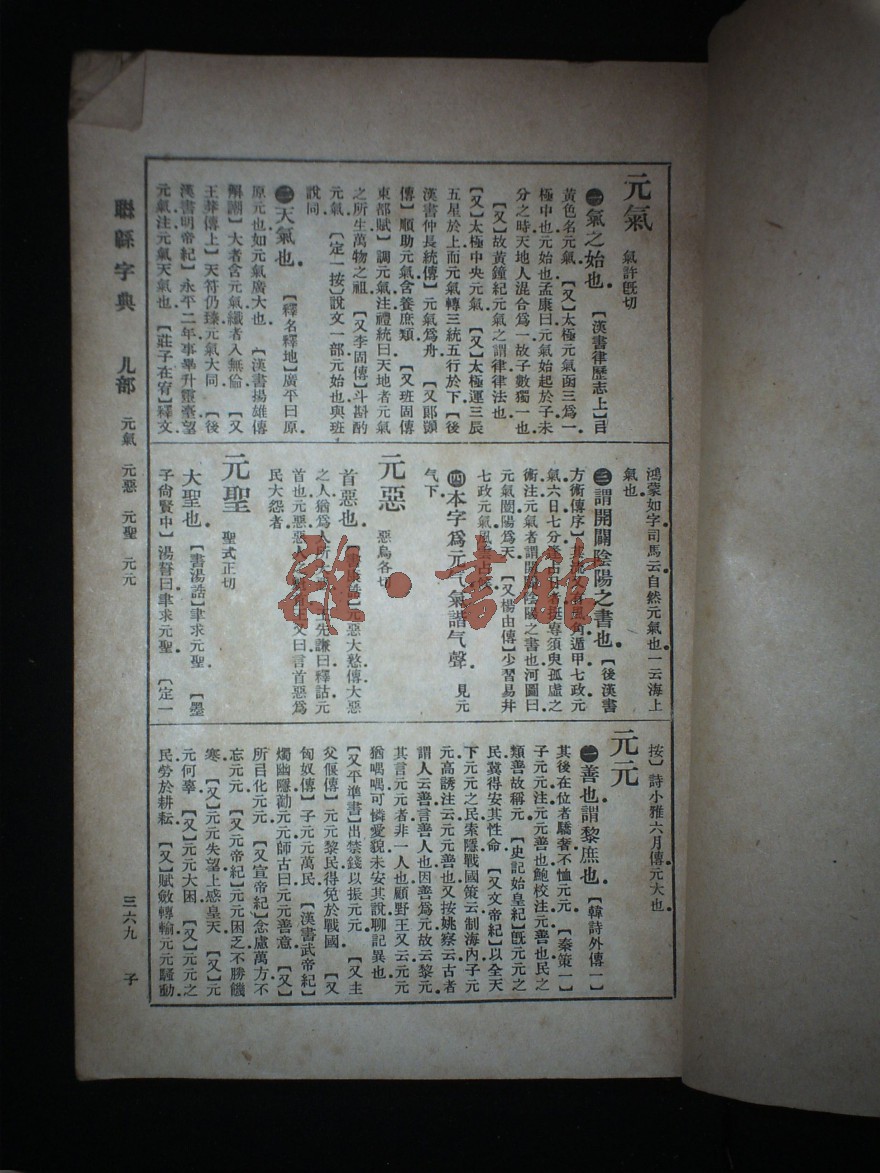 元氣 氣許旣切
㊀氣之始也。【漢書律歷志上】㠯
黃色名元氣。【又】太極元氣函三爲一。
極中也元始也孟康曰元氣始起於子未
分之時天地人混合爲一故子數獨一也
【又】故黃鐘紀元氣之謂律律法也
【又】太極中央元氣。【又】太極運三辰
五星於上而元氣轉三統五行於下【後
漢書仲長統傳】元氣爲舟【又郞顗
傳】順助元氣含養庶類。【又班固傳
東都賦】調元氣注禮統曰天地者元氣
之所生萬物之祖【又李固傳】斗斟酌
元氣。【定一按】說文一部元始也與班
說同
㊁天氣也。【釋名釋地】廣平曰原
原元也如元氣廣大也【漢書揚雄傳
解謿】大者含元氣纖者入無倫【又
王莽傳上】天符仍臻元氣大同【後
漢書明帝紀】永平二年事畢升靈臺望
元氣注元氣天氣也【莊子在宥】釋文
鴻蒙如字司馬云自然元氣也一云海上
氣也
㊂謂開闢陰陽之書也。【後漢書
方術傳序】其流又有風角遁甲七政元
氣六日七分逢占日者挺專須臾孤虛之
術注元氣者謂開闢陰陽之書也河圖曰
元氣闓陽爲天【又楊由傳】少習易幷
七政元氣風雲占候
㊃本字爲元气氣諧气聲 見元
气下
元惡 惡烏各切
首惡也。【書康誥】元惡大憝傳大惡
之人猶爲人所 王先謙曰釋詁元
首也元惡 又曰言首惡爲
民大怨者
元聖 聖式正切
大聖也。【書湯誥】聿求元聖【墨
子尙賢中】湯誓曰聿求元聖【定一
按】詩小雅六月傳元大也
元元
㊀善也謂黎庶也。【韓詩外傳一】
其後在位者驕奢不恤元元【秦策一】
子元元注元元善也鮑校注元善也民之
類善故稱元【史記始皇紀】旣元元之
民冀得安其性命【又文帝紀】以全天
下元元之民索隱戰國策云制海內子元
元高誘注云元元善也又按姚察云古者
謂人云善言善人也因善爲元故云黎元
其言元元者非一人也顧野王又云元元
猶喁喁可憐愛貌未安其說聊記異也
【又平準書】出禁錢以振元元【又主
父偃傳】元元黎民得免於戰國【又
匈奴傳】子元元萬民【漢書武帝紀】
燭幽隱勸元元師古曰元元善意【又】
所㠯化元元【又宣帝紀】念慮萬方不
忘元元【又元帝紀】元元困乏不勝饑
寒【又】元元失望上惑皇天【又】元
元何辜【又】元元大困【又】元元之
民勞於耕耘【又】賦斂轉輸元元騷動
聯緜字典 儿部 元氣 元惡 元聖 元元 三六九 子
雜·書館